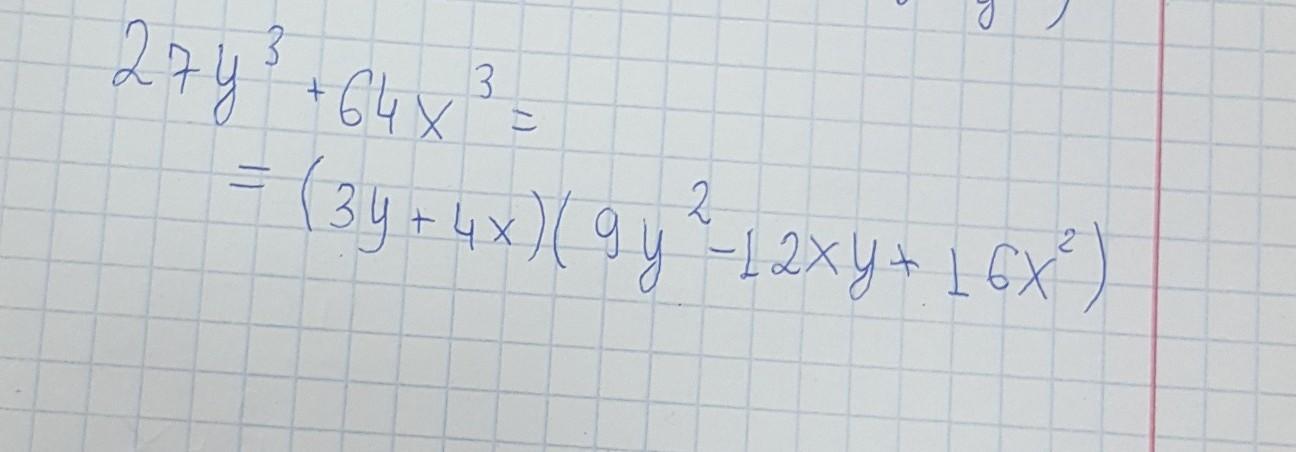 27y³ + 64x³ =
= (3y + 4x)(9y² - 12xy + 16x²)